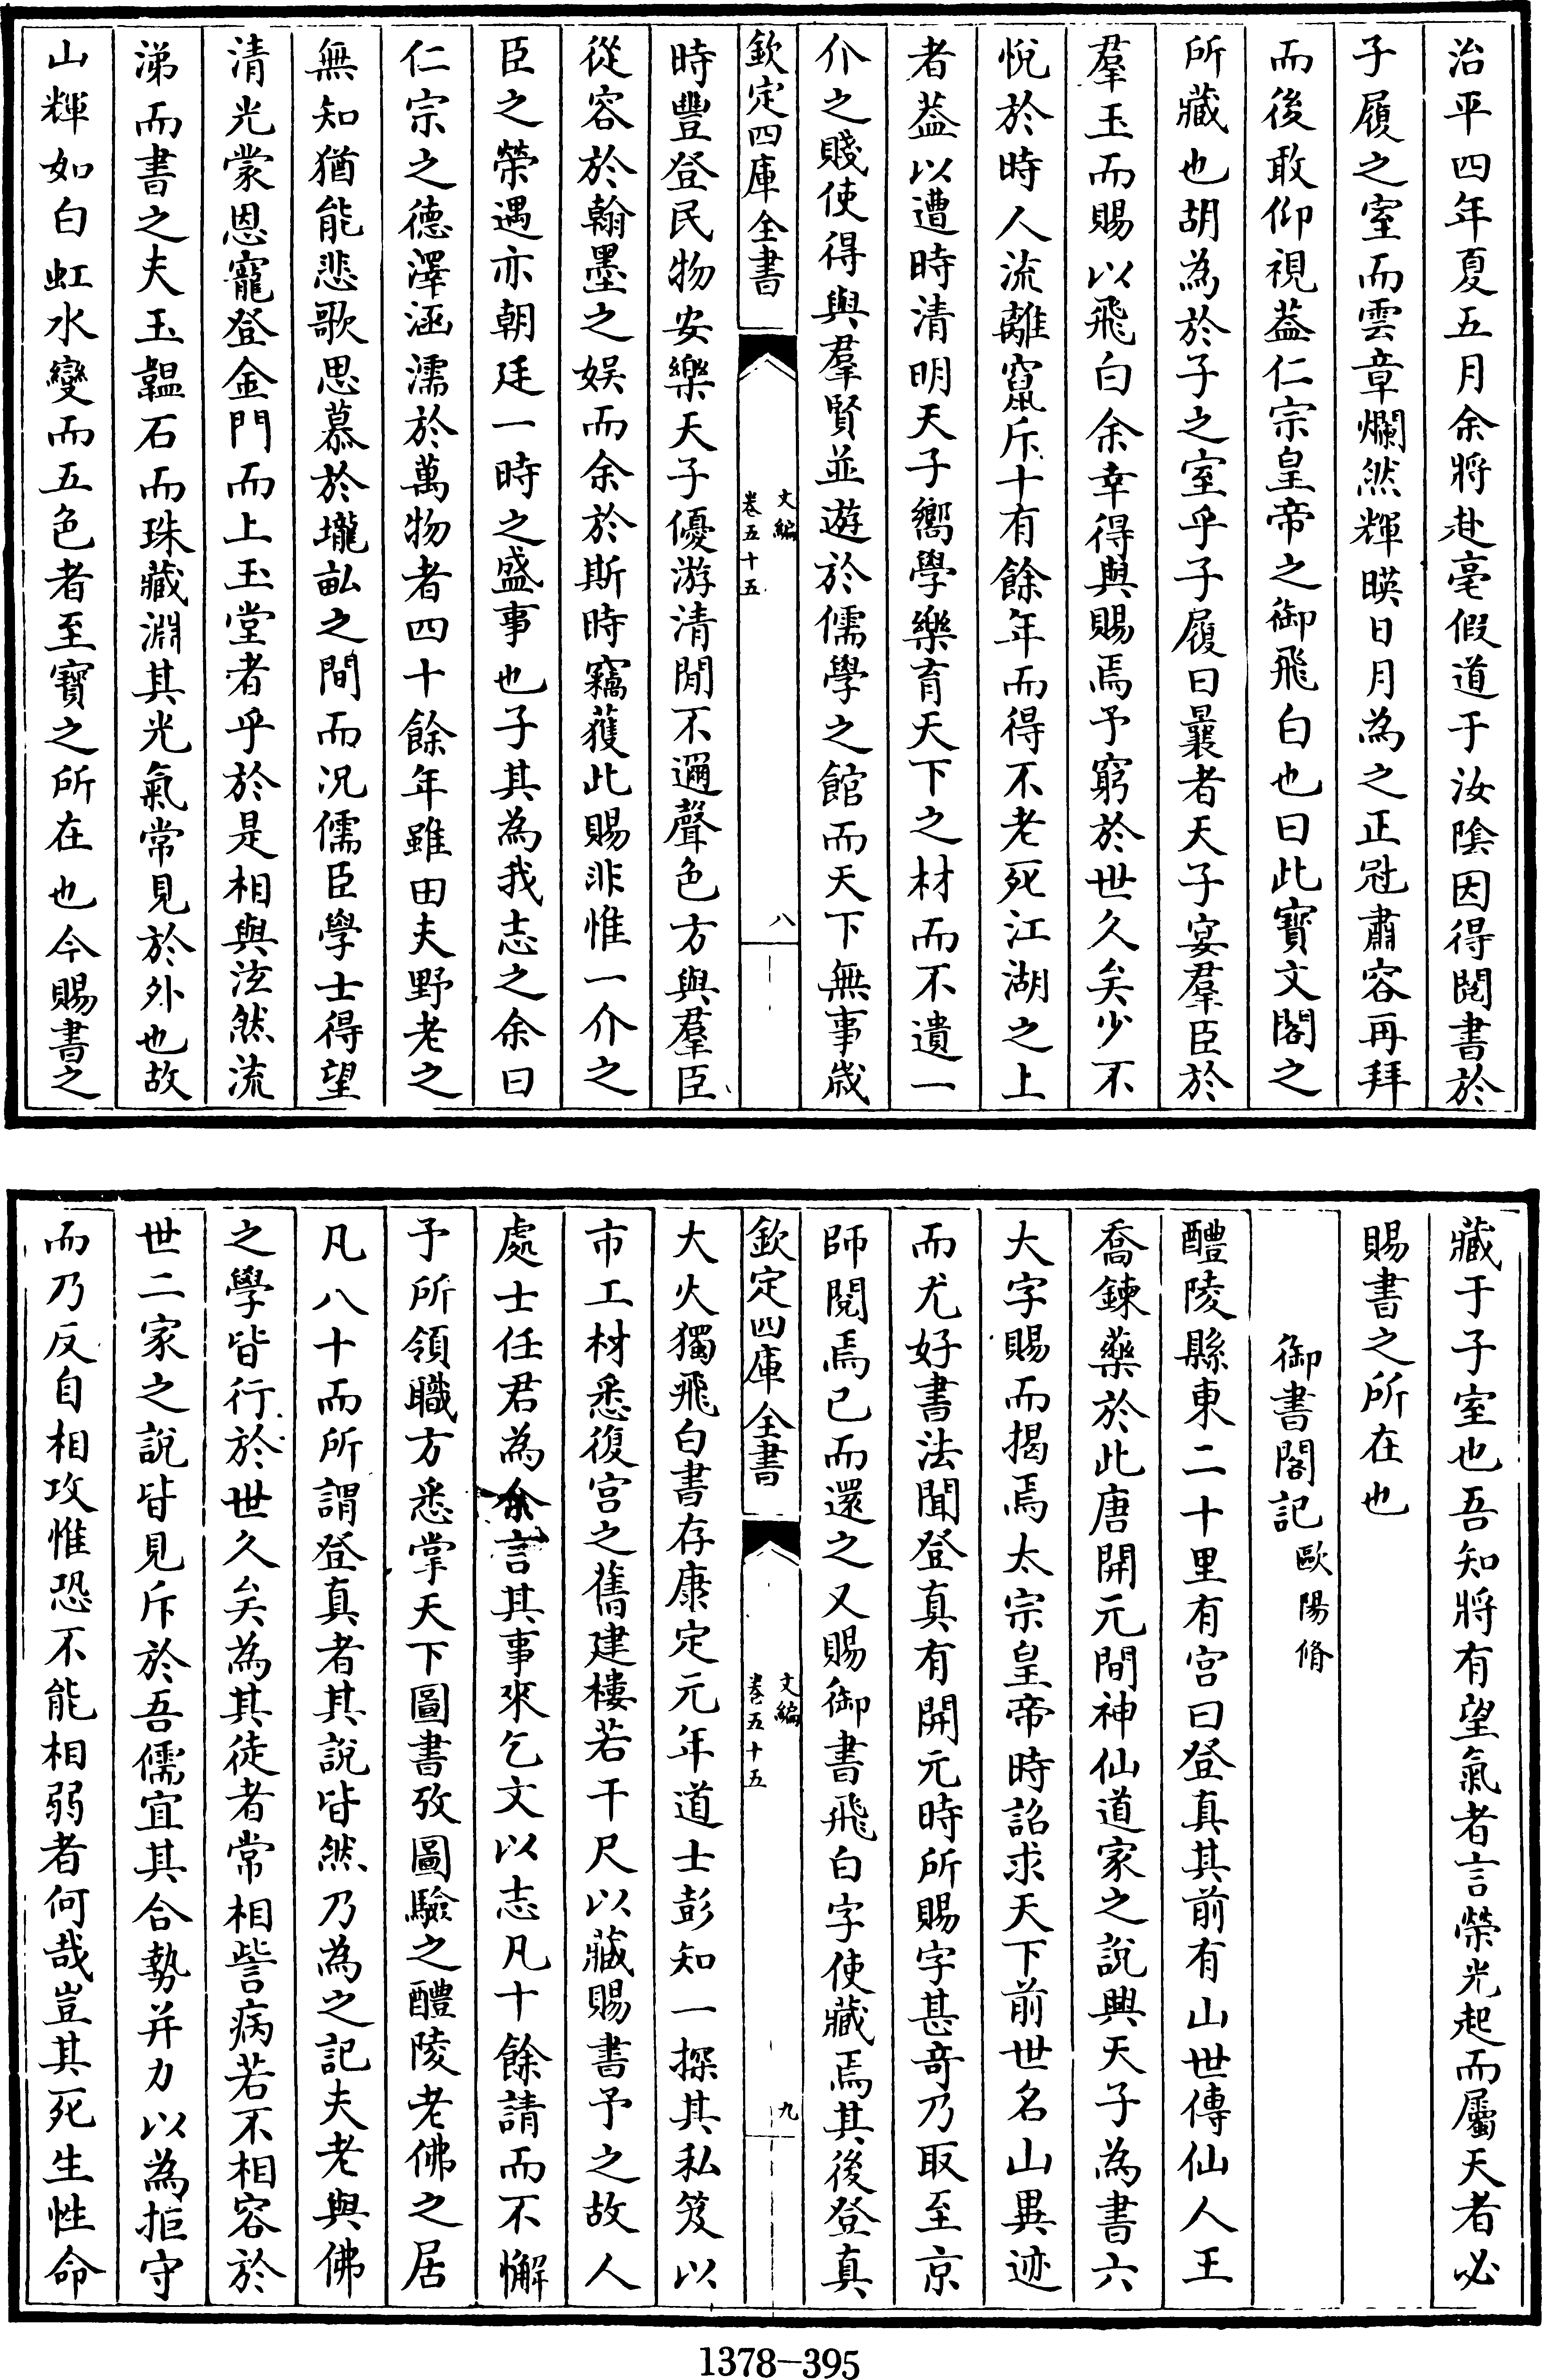 治平四年夏五月余將赴亳假道于汝陰因得閱書於
子履之室而雲章爛然輝暎日月為之正冠肅容再拜
而後敢仰視蓋仁宗皇帝之御飛白也曰此寶文閣之
所藏也胡為於子之室乎子履曰曩者天子宴羣臣於
羣玉而賜以飛白余幸得與賜焉予窮於世久矣少不
悅於時人流離竄斥十有餘年而得不老死江湖之上
者葢以遭時清明天子嚮學樂育天下之材而不遺一
介之賤使得與羣賢並遊於儒學之館而天下無事歲
欽定四庫全書 文編 卷五十五 八
時豐登民物安樂天子優游清閒不邇聲色方與羣臣
從容於翰墨之娛而余於斯時竊獲此賜非惟一介之
臣之榮遇亦朝廷一時之盛事也子其為我志之余曰
仁宗之德澤涵濡於萬物者四十餘年雖田夫野老之
無知猶能悲歌思慕於壠畝之間而况儒臣學士得望
清光蒙恩寵登金門而上玉堂者乎於是相與泫然流
涕而書之夫玉韞石而珠藏淵其光氣常見於外也故
山輝如白虹水變而五色者至寶之所在也今賜書之
藏于子室也吾知將有望氣者言榮光起而屬天者必
賜書之所在也
御書閣記 歐陽脩
醴陵縣東二十里有宫曰登真其前有山世傳仙人王
喬鍊藥於此唐開元間神仙道家之說興天子為書六
大字賜而揭焉太宗皇帝時詔求天下前世名山異迹
而尤好書法聞登真有開元時所賜字甚奇乃取至京
師閱焉已而還之又賜御書飛白字使藏焉其後登真
欽定四庫全書 文編 卷五十五 九
大火獨飛白書存康定元年道士彭知一探其私笈以
市工材悉復宫之舊建樓若干尺以藏賜書予之故人
處士任君為余言其事來乞文以志凡十餘請而不懈
予所領職方悉掌天下圖書攷圖驗之醴陵老佛之居
凡八十而所謂登真者其說皆然乃為之記夫老與佛
之學皆行於世久矣為其徒者常相訾病若不相容於
世二家之說皆見斥於吾儒宜其合勢并力以為拒守
而乃反自相攻惟恐不能相弱者何哉豈其死生性命
1378—395